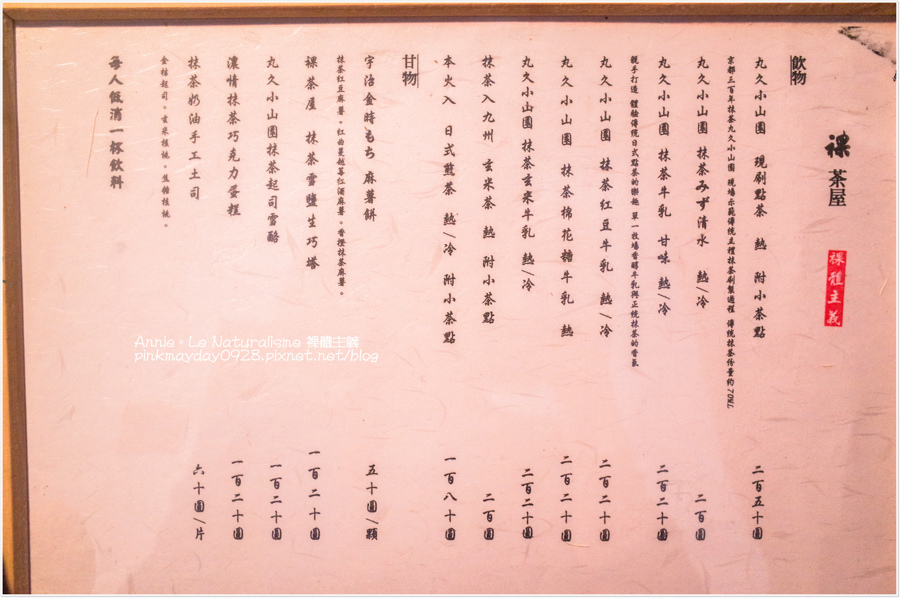 裸 茶屋
裸體主義
飲物
丸久小山園 現刷點茶 熱 附小茶點 二百五十圓
京都三百年抹茶丸久小山園 現場示範傳統立禮抹茶刷製過程 傳統抹茶份量約70ML
丸久小山園 抹茶みず清水 熱/冷 二百圓
丸久小山園 抹茶牛乳 甘味 熱/冷 二百二十圓
親手打造 體驗傳統日式點茶的樂趣 單一牧場香醇牛乳與正統抹茶的香氣
丸久小山園 抹茶紅豆牛乳 熱/冷 二百二十圓
丸久小山園 抹茶棉花糖牛乳 熱 二百二十圓
丸久小山園 抹茶玄米牛乳 熱/冷 二百二十圓
抹茶入九州 玄米茶 熱 附小茶點 二百圓
本火入 日式煎茶 熱/冷 附小茶點 一百八十圓
甘物
宇治金時もち 麻薯餅 五十圓/顆
抹茶紅豆麻薯。紅曲蔓越莓仁酒麻薯。香橙抹茶麻薯。
裸茶屋 抹茶雪鹽生巧塔 一百二十圓
丸久小山園抹茶起司雪酪 一百二十圓
濃情抹茶巧克力蛋糕 一百二十圓
抹茶奶油手工土司 六十圓/片
金桔起司。玄米核桃。焦糖核桃。
每人低消一杯飲料
Annie。Le Naturalisme 裸體主義
pinkmayday0928.pixnet.net/blog